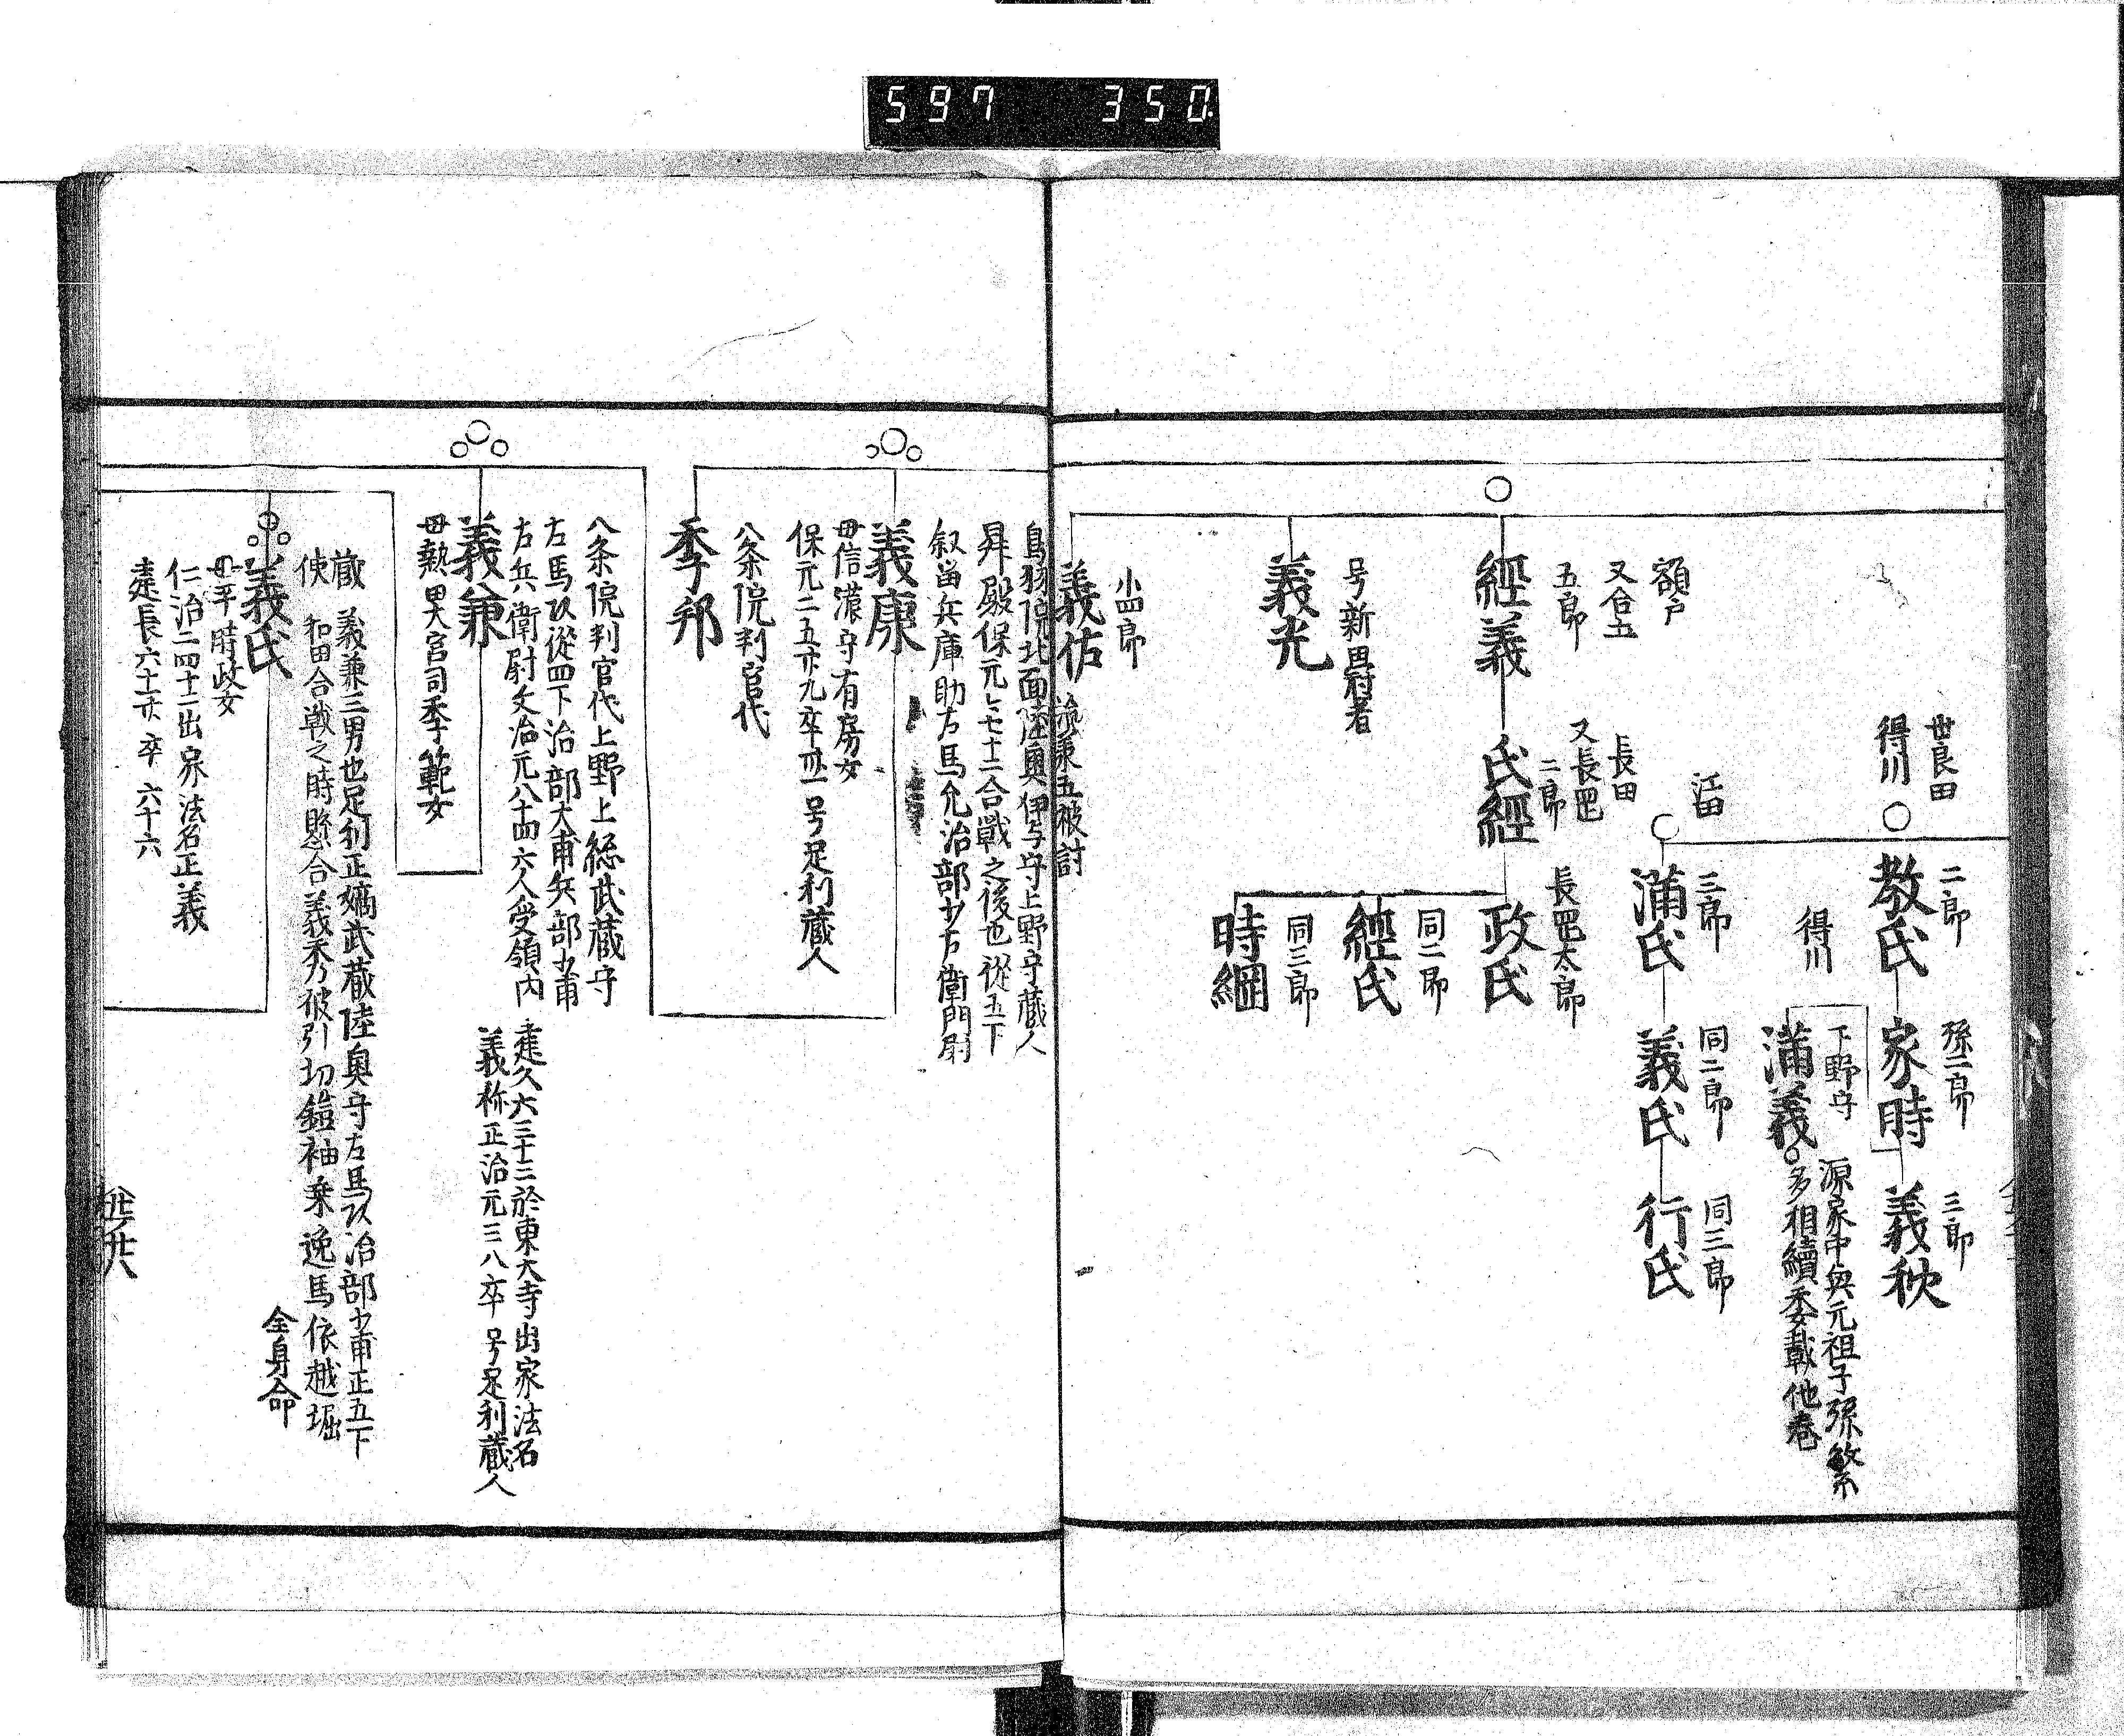 597 350
世良田
得川
二郎
教氏
孫二郎
家時
三郎
義秋
得川
下野守
満義
源家中興元祖子孫繁
多相續委載他巻
江田
三郎
満氏
同二郎
義氏
同三郎
行氏
額戸
又合土
五郎
經義
長田
又長罡
二郎
氏經
長罡太郎
政氏
同二郎
經氏
同三郎
時綱
号新田冠者
義光
小四郎
義佑
承五被討
鳥羽院北面陸奥伊与守上野守蔵人
昇殿保元々七十一合戰之後也從五下
叙留兵庫助右馬允治部少右衛門尉
義康
母信濃守有房女
保元二五廿九卒卅一号足利蔵人
八条院判官代
季邦
八条院判官代上野上総武蔵守
左馬頭從四下治部大甫兵部少甫
右兵衛尉文治元八十四六人受領内
義兼
母熱田大宮司季範女
建久六三十三於東大寺出家法名
義称正治元三八卒 号足利蔵人
蔵 義兼三男也足利正嫡武蔵陸奥守左馬頭治部少甫正五下
使 和田合戰之時懸合義秀被引切鎧袖乗逸馬依越堀
全身命
義氏
母平時政女
仁治二四十二出家法名正義
建長六十一廿一卒 六十六